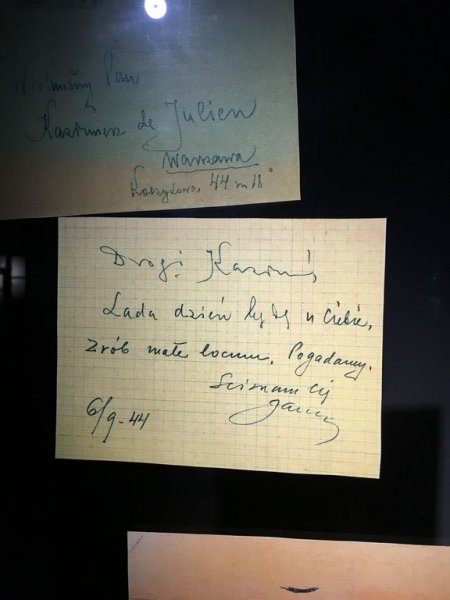 Pan
Kazimierz de Julien
Warszawa
Koszykowa 44 m 18
Drogi Kaziu,
Lada dzień będę u Ciebie.
Zrób małe locum. Pogadamy.
Ściskam Cię
6/9-44